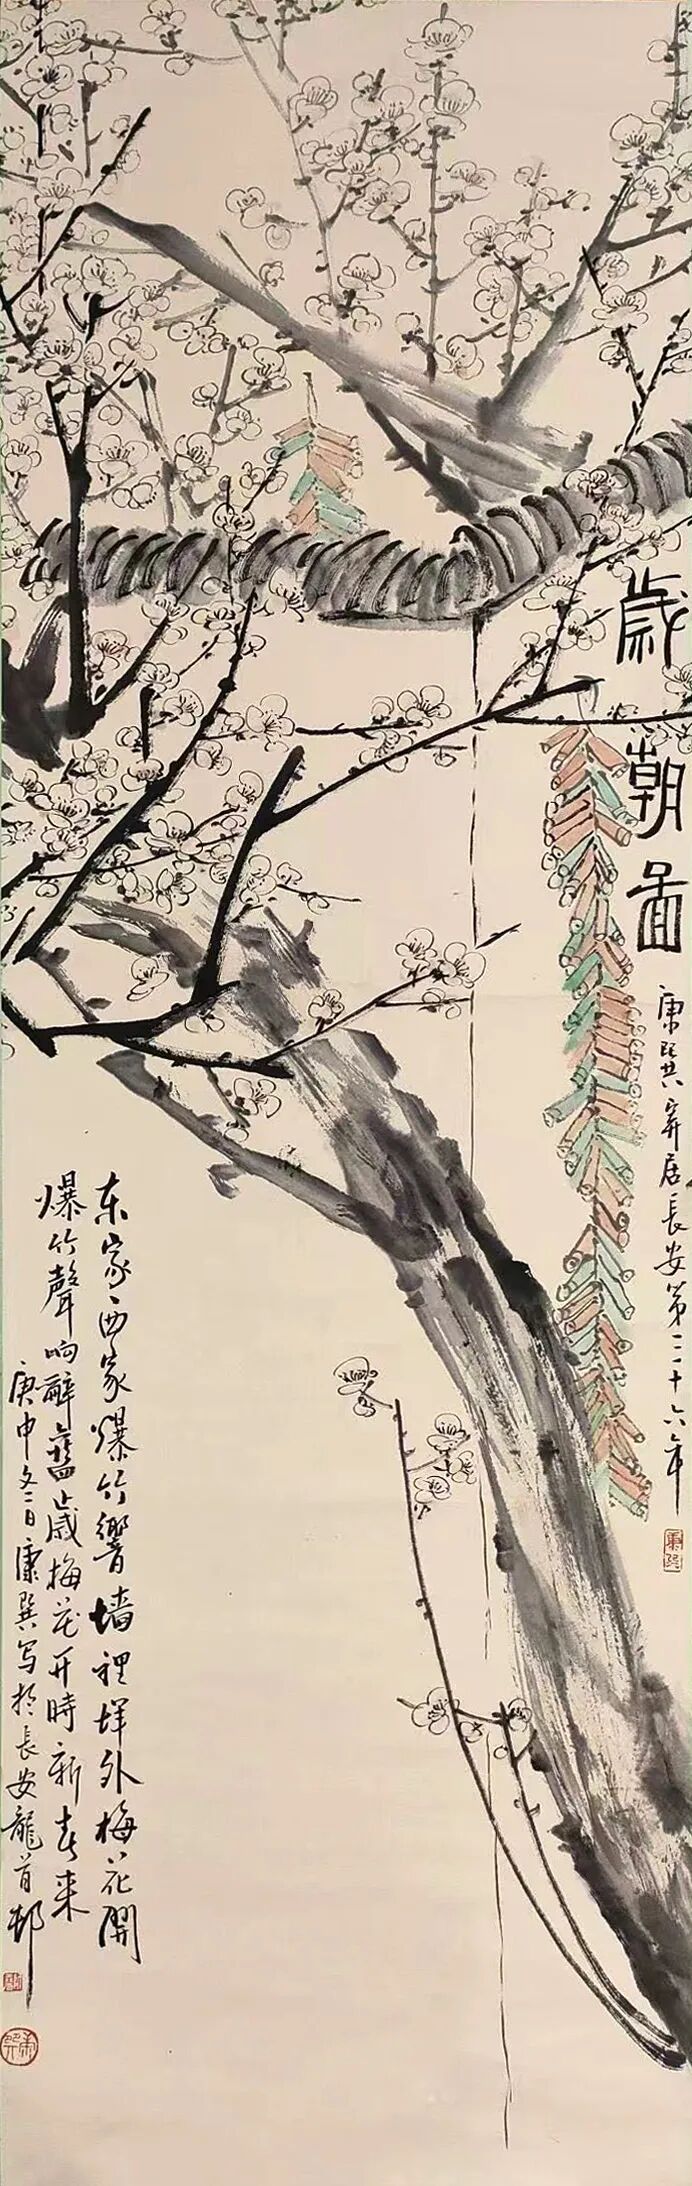 歲朝圖
康巽寄居長安第三十六年
东家西家爆竹響墙裡墙外梅花開
爆竹聲响辭舊歲梅花开時新春来
庚申冬日康巽写於長安龍首邨